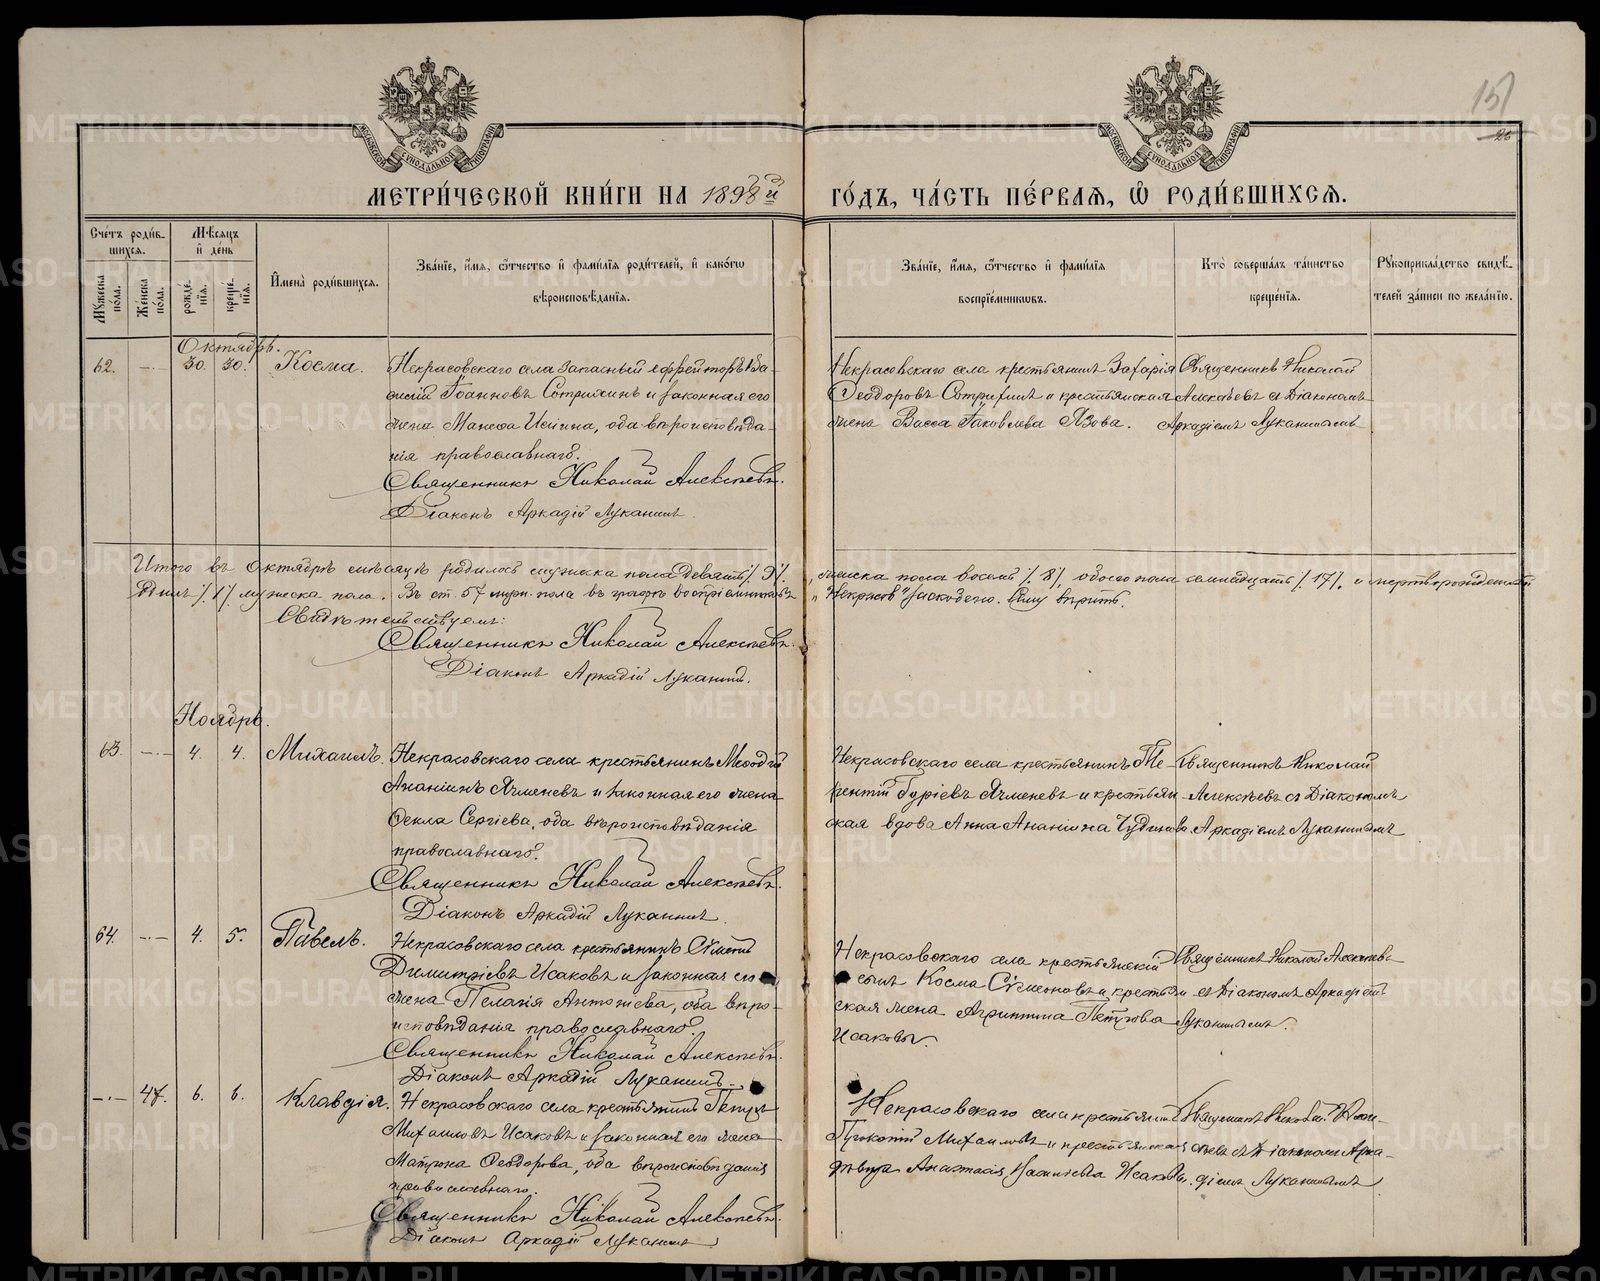 151
26
МОСКОВСКОЙ СѴНОДАЛЬНОЙ ТИПОГРАФІИ
МОСКОВСКОЙ СѴНОДАЛЬНОЙ ТИПОГРАФІИ
МЕТРИ́ЧЕСКОЙ КНИ́ГИ НА 1898й
ГО́ДЪ, ЧА́СТЬ ПЕ́РВАѦ, Ѡ҆ РОДИ́ВШИХСѦ.
Сче́тъ роди́вшихсѧ.
Мꙋ́жеска по́ла.
Же́нска по́ла.
Мѣ́сѧцъ и҆ де́нь
рожде́нїѧ.
креще́нїѧ.
И҆мена̀ роди́вшихсѧ.
Зва́нїе, и҆́мѧ, ѻ҆́тчество и҆ фами́лїѧ роди́телей, и҆ како́гѡ
вѣроисповѣ́данїѧ.
Зва́нїе, и҆́мѧ, ѻ҆́тчество и҆ фами́лїѧ
воспрїе́мникѡвъ.
Кто̀ соверша́лъ та́инство
креще́нїѧ.
Рꙋкоприкла́дство свидѣ́телей за́писи по жела́нїю.
Октябрь.
62. — 30. 30. Косма.
Некрасовскаго села запасный ефрейторъ Ва-
силій Іоанновъ Сотрихинъ и законная его
жена Манефа Исіина, оба вѣроисповѣда-
нія православнаго.
Священникъ Николай Алексѣевъ.
Діаконъ Аркадій Луканинъ.
Некрасовскаго села крестьянинъ Захарія
Ѳеодоровъ Сотрихинъ и крестьянская
жена Васса Іаковлева Язова.
Священникъ Николай
Алексѣевъ съ Діакономъ
Аркадіемъ Луканинымъ
Итого въ Октябрѣ мѣсяцѣ родилось мужска пола девять /. 9 /.
женска пола восемь /. 8 /, обоего пола семнадцать /. 17 /. и мертворожденный
одинъ /. 1 /. мужска пола. Въ ст. 57 муж. пола въ графѣ воспріемниковъ
„Некрасов“ заскоблено. Сему вѣрить.
Свидѣтельствуемъ:
Священникъ Николай Алексѣевъ.
Діаконъ Аркадій Луканинъ.
Ноябрь.
63. — 4. 4. Михаилъ.
Некрасовскаго села крестьянинъ Меѳодій
Ананіинъ Ячменевъ и законная его жена
Ѳекла Сергіева, оба вѣроисповѣданія
православнаго.
Священникъ Николай Алексѣевъ.
Діаконъ Аркадій Луканинъ.
Некрасовскаго села крестьянинъ Те-
рентій Гуріевъ Ячменевъ и крестьян-
ская вдова Анна Ананіина Чудинова
Священникъ Николай
Алексѣевъ съ Діакономъ
Аркадіемъ Луканинымъ
64. — 4. 5. Павелъ.
Некрасовскаго села крестьянинъ Сѵмеонъ
Димитріевъ Исаковъ и законная его
жена Пелагія Антоніева, оба вѣро-
исповѣданія православнаго.
Священникъ Николай Алексѣевъ.
Діаконъ Аркадій Луканинъ.
Некрасовскаго села крестьянскій
сынъ Косма Сѵмеоновъ и крестьян-
ская жена Агриппина Петрова
Исаковы.
Священникъ Николай Алексѣевъ
съ Діакономъ Аркадіемъ
Луканинымъ.
— 47. 6. 6. Клавдія.
Некрасовскаго села крестьянинъ Петръ
Михаиловъ Исаковъ и законная его жена
Матрона Ѳеодорова, оба вѣроисповѣданія
православнаго.
Священникъ Николай Алексѣевъ.
Діаконъ Аркадій Луканинъ
Некрасовскаго села крестьянинъ
Прокопій Михаиловъ и крестьянская
дѣвица Анастасія Исаковы.
Священникъ Николай Алек-
сѣевъ съ Діакономъ Арка-
діемъ Луканинымъ
METRIKI.GASO-URAL.RU